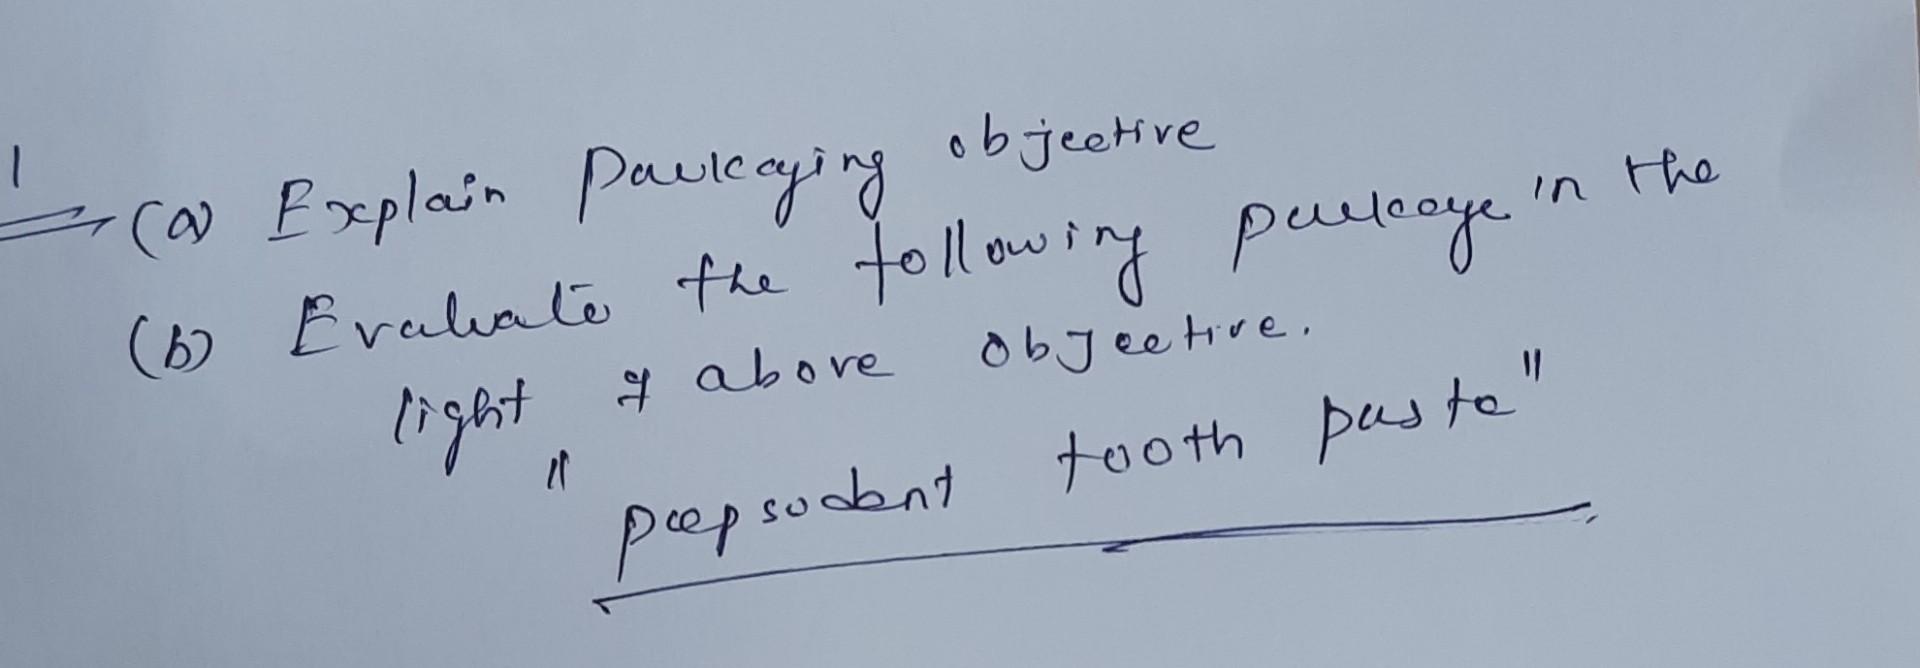 1 (a) Explain Packaging objective
(b) Evaluate the following package in the
light of above objective.
"pepsodent tooth paste"